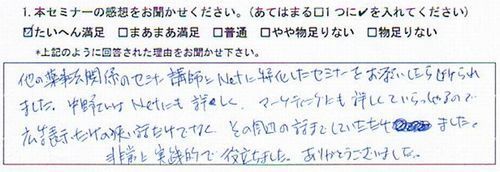 1. 本セミナーの感想をお聞かせください。（あてはまる□1つに✔を入れてください）
☑たいへん満足 □まあまあ満足 □普通 □やや物足りない □物足りない
*上記のように回答された理由をお聞かせ下さい。
他の薬事法関係のセミナー講師とNetに特化したセミナーをお
ました。中野さんはNetにも詳しく、マーケティングにも詳しくていらっしゃるので
広告表示だけの狭い話だけでなく、その周辺の話までしていただけました。
非常に実践的で役立ちました。ありがとうございました。